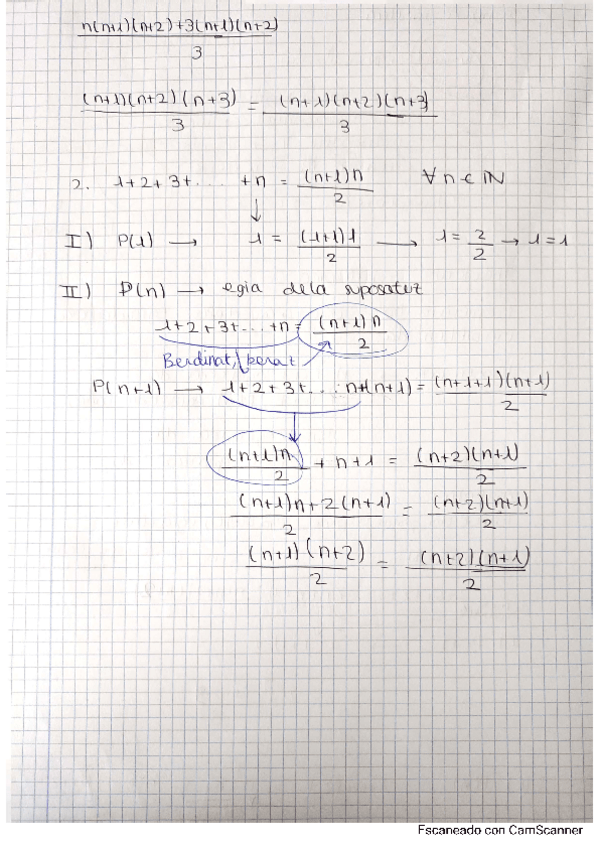 n(n+1)(n+2)+3(n+1)(n+2)
3
(n+1)(n+2)(n+3) = (n+1)(n+2)(n+3)
3 3
2. 1+2+3+... +n = (n+1)n ∀n∈ℕ
2
↓
I) P(1) → 1 = (1+1)1 → 1=2 → 1=1
2 2
II) P(n) → egia dela suposatuz
1+2+3+...+n = (n+1)n
2
Berdinak
P(n+1) → 1+2+3+...n+(n+1) = (n+1+1)(n+1)
2
(n+1)n + n+1 = (n+2)(n+1)
2 2
(n+1)n+2(n+1) = (n+2)(n+1)
2 2
(n+1)(n+2) = (n+2)(n+1)
2 2
Escaneado con CamScanner